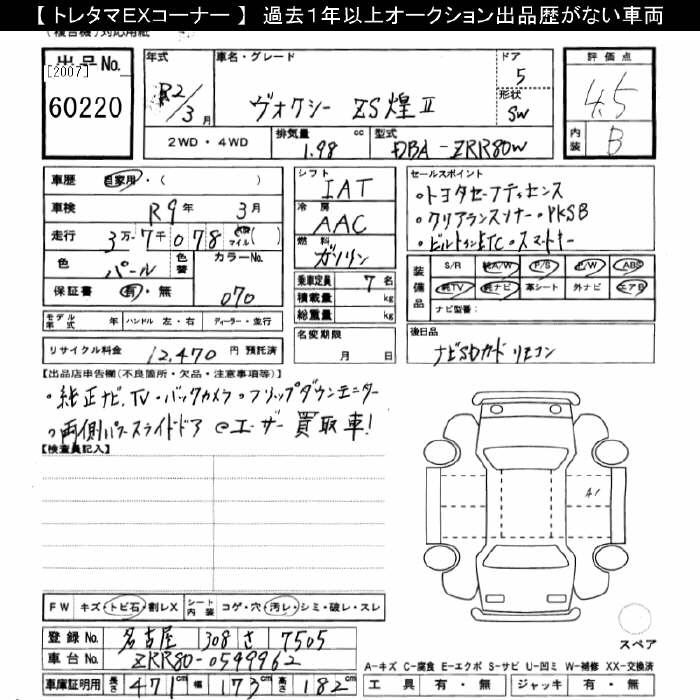 【 トレタマEXコーナー 】 過去1年以上オークション出品歴がない車両
(複合機)対応用紙
出品No. [2007] 60220
年式 R2/3月
車名・グレード ヴォクシー ZS煌Ⅱ
ドア 5
形状 SW
評価点 4.5
内装 B
2WD・4WD
排気量 1.98 cc
型式 DBA-ZRR80W
車歴 自家用・( )
車検 R9年 3月
走行 3万7千078 マイル( )
色 パール 色替
カラーNo. 070
保証書 有・無
シフト IAT
冷房 AAC
燃料 ガソリン
乗車定員 7名
積載量 kg
総重量 kg
名変期限 月 日
セールスポイント
・トヨタセーフティセンス
・クリアランスソナー・PKSB
・ビルトインETC・スマートキー
装備品 S/R 純A/W P/S P/W ABS
純TV 純ナビ 革シート 外ナビ エアB
ナビ型番:
モデル年式 年 ハンドル 左・右 ディーラー・並行
リサイクル料金 12,470 円 預託済
後日品
ナビSDカード リモコン
【出品店申告欄(不良箇所・欠品・注意事項等)】
・純正ナビ,TV・バックカメラ・フリップダウンモニター
・両側パワースライドドア @ユーザー買取車!
【検査員記入】
A1
FW キズ・トビ石・割レX シート内装 コゲ・穴・汚レ・シミ・破レ・スレ
スペア
登録No. 名古屋 308 さ 7505
車台No. ZRR80-0549962
A-キズ C-腐食 E-エクボ S-サビ U-凹ミ W-補修 XX-交換済
車庫証明用 長さ 471cm 幅 173cm 高さ 182cm
工具 有・無 ジャッキ 有・無